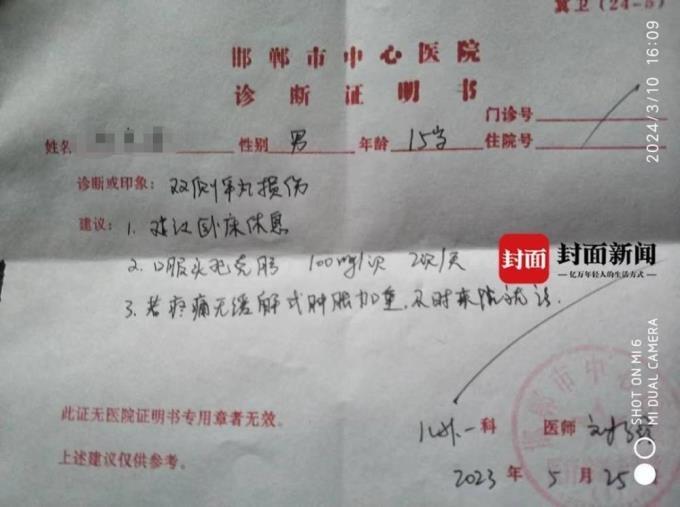 冀卫(24-5)
邯郸市中心医院
诊断证明书
门诊号
姓名 性别 男 年龄 15岁 住院号
诊断或印象：双侧睾丸损伤
建议：1. 建议卧床休息
2. 口服头孢克肟 100mg/次 2次/天
3. 若疼痛无缓解或肿胀加重，及时来院就诊.
封面 封面新闻
亿万年轻人的生活方式
此证无医院证明书专用章者无效。
上述建议仅供参考。
儿外一科 医师
2023 年 5 月 25
邯郸市中心
2024/3/10 16:09
SHOT ON MI 6
MI DUAL CAMERA